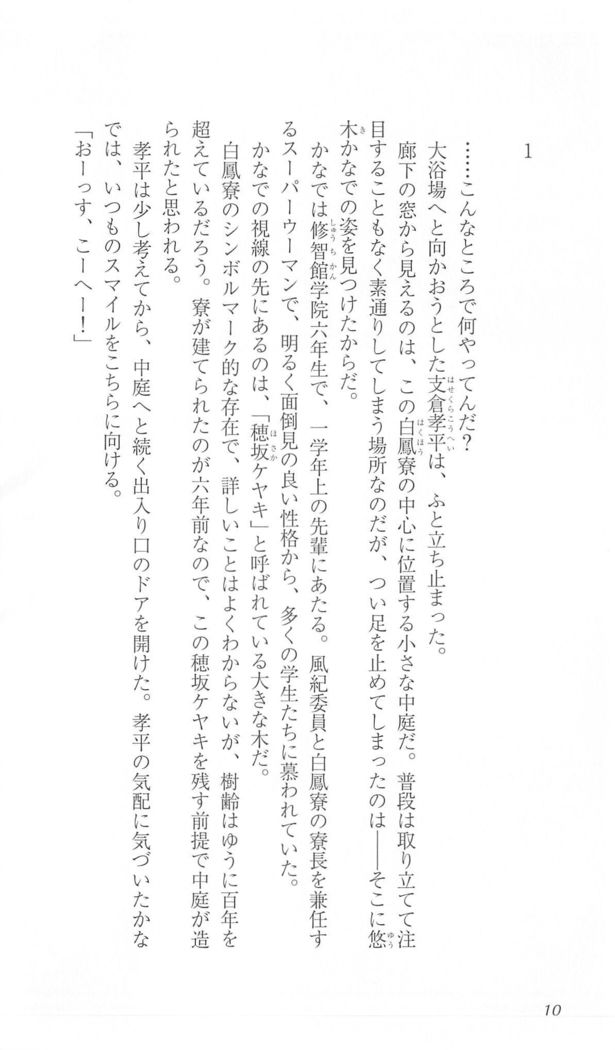 1
……こんなところで何やってんだ？
大浴場へと向かおうとした支倉孝平は、ふと立ち止まった。
廊下の窓から見えるのは、この白鳳寮の中心に位置する小さな中庭だ。普段は取り立てて注
目することもなく素通りしてしまう場所なのだが、つい足を止めてしまったのは――そこに悠
木かなでの姿を見つけたからだ。
かなでは修智館学院六年生で、一学年上の先輩にあたる。風紀委員と白鳳寮の寮長を兼任す
るスーパーウーマンで、明るく面倒見の良い性格から、多くの学生たちに慕われていた。
かなでの視線の先にあるのは、「穂坂ケヤキ」と呼ばれている大きな木だ。
白鳳寮のシンボルマーク的な存在で、詳しいことはよくわからないが、樹齢はゆうに百年を
超えているだろう。寮が建てられたのが六年前なので、この穂坂ケヤキを残す前提で中庭が造
られたと思われる。
孝平は少し考えてから、中庭へと続く出入り口のドアを開けた。孝平の気配に気づいたかな
では、いつものスマイルをこちらに向ける。
「おーっす、こーへー！」
10